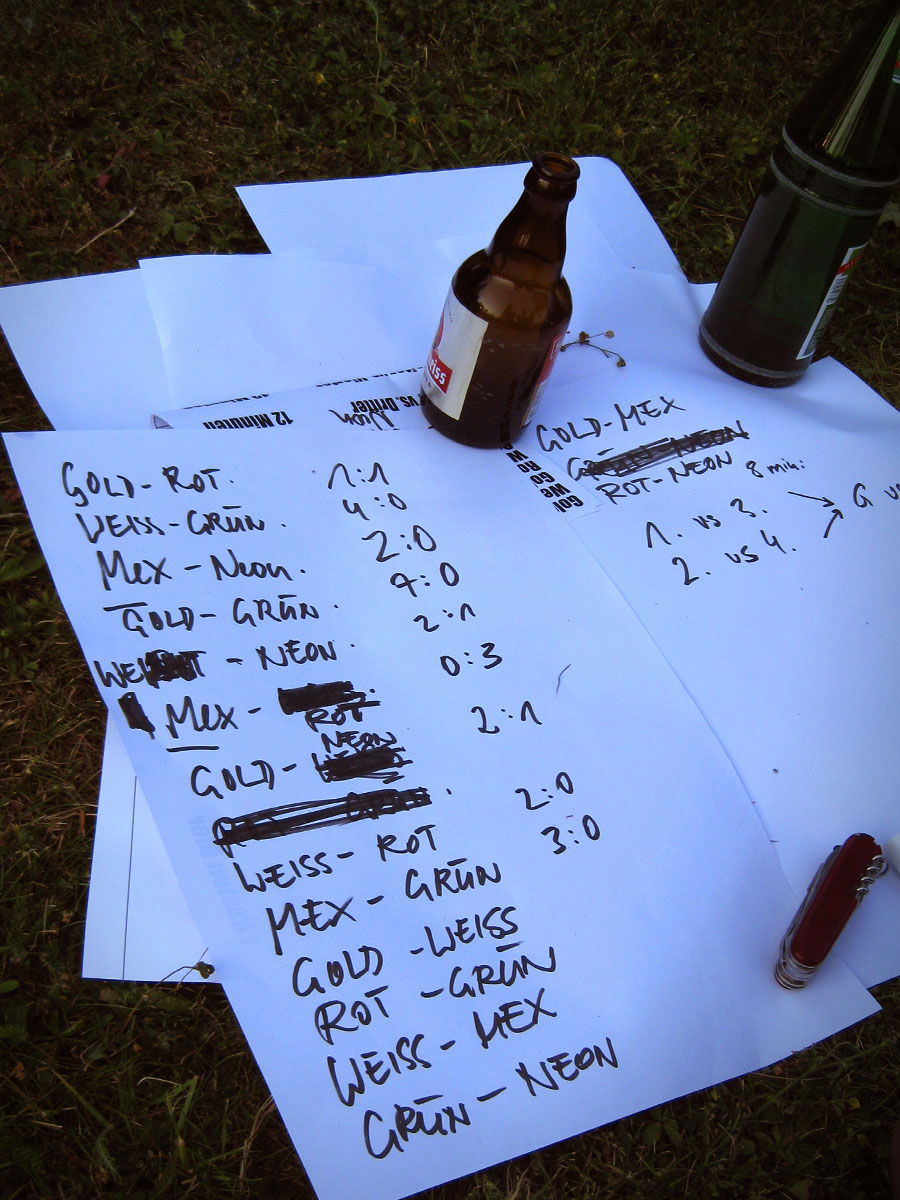 12 Minuten
vs. Dritter
Neon
GOLD - ROT. 1:1
WEISS - GRÜN. 4:0
MEX - NEON. 2:0
GOLD - GRÜN. 4:0
WEI - NEON. 2:1
MEX - ROT 0:3
NEON
GOLD - 2:1
WEISS - ROT 2:0
MEX - GRÜN 3:0
GOLD - WEISS
ROT - GRÜN
WEISS - MEX
GRÜN - NEON
GOLD - MEX
ROT - NEON 8 min:
1. vs 3. → G vs
2. vs 4.